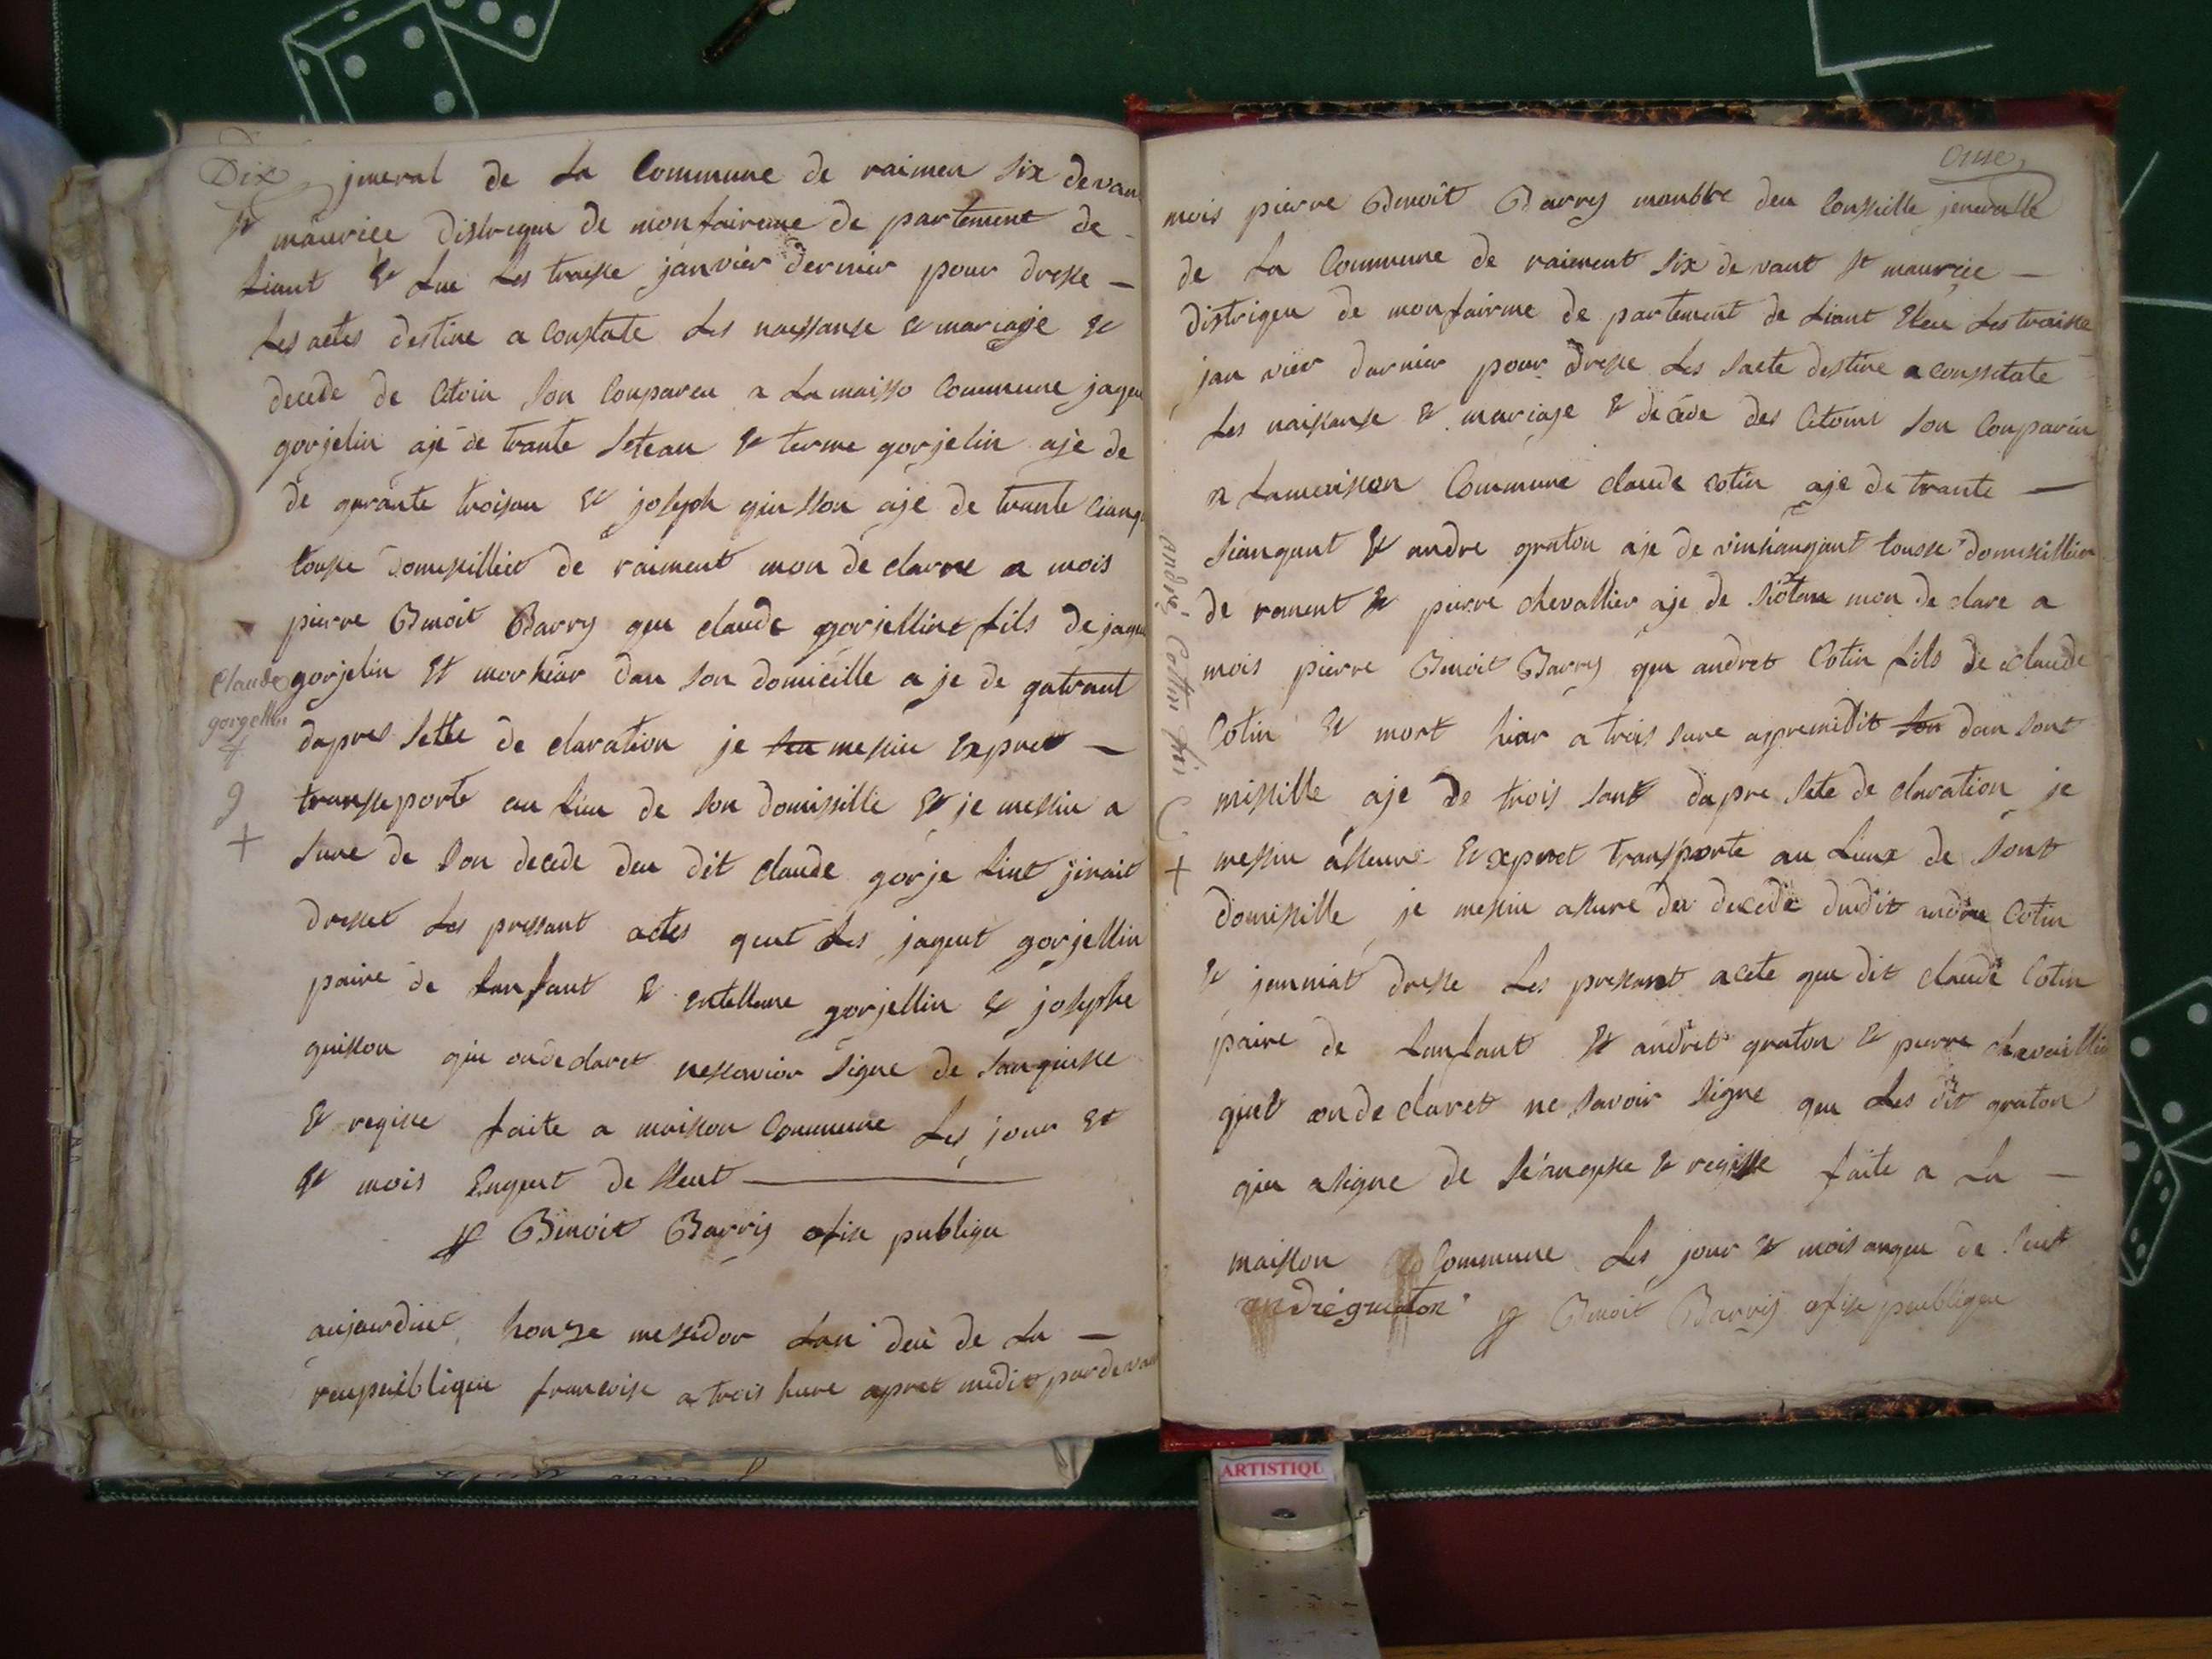 Dix
jneral de La Commune de raimen six devan
st maurice distrique de monfaireme de partement de
Liant & Lue Les traisse janvier dernier pour dresse
Les actes destine a constate Les naissanse & mariage &
decede de Citoin son Conpareu a La maisso Commune jaque
gorjelin aje de trante seteau & terme gorjelin aje de
de garante troisau & joseph guisson aje de trante cianq
tousse domissillier de raiment mon de clarre a mois
pierre Benoit Barry que claude gorjellint fils de jaque
gorjelin & mor hiar dan son domicille a je de gatrant
Claude gorgellin
9
dapres sette de claration je messui expret
transseporte au Lieu de son domissille & je messui a
sure de son decede deu dit claude gorje lint jinait
dresset Les pressant actes queut Les jaqeut gorjellin
paire de Lanfant & entellme gorjellin & josephe
guisson qui onde claret nessavior signe de sanquisse
& regisse faite a maison Commune Les jour et
& mois enqeut de sseut
p Benoit Barry ofise publique
aujourduit honze messidor Lan deu de La
reupuiblique francoise a trois hure apret midit par devan
onse
mois pierre Benoit Barry manbbre deu Consseille jeneralle
de La Commune de raiement six de vant st maurice
distrigeu de monfairme de partement de Liant Eleu Les traisse
jan vier darnier pour dresse Les sacte destine a consstate
Les naissanse & mariage & decede des Citoins son Conpareu
a Lameisson Commune claude cotin aje de trante
siangant & andre graton aje de vinsiangant tousse domissillier
de rament & pierre chevallier aje de mon de clare a
mois pierre Benoit Barry que andret Cotin fils de claude
Cotin & mort hiar a trois sure aspremidit dan sont
missille aje de trois sant dapre sete de claration je
messui asseure & expret transporte au Lieux de sont
domissille je messui assure deu decede dudit andre Cotin
& jennait dresse Les pressant acete que dit claude Cotin
paire de Lanfant & andret graton & pierre chevaillier
quit onde claret ne savoir signe que Les dit graton
qui asigne de seanqsse & regisse faite a La
maisson Commune Les jour & mois anqeu de seut
andré graton p Benoit Barry ofise peublique
andré Cottin